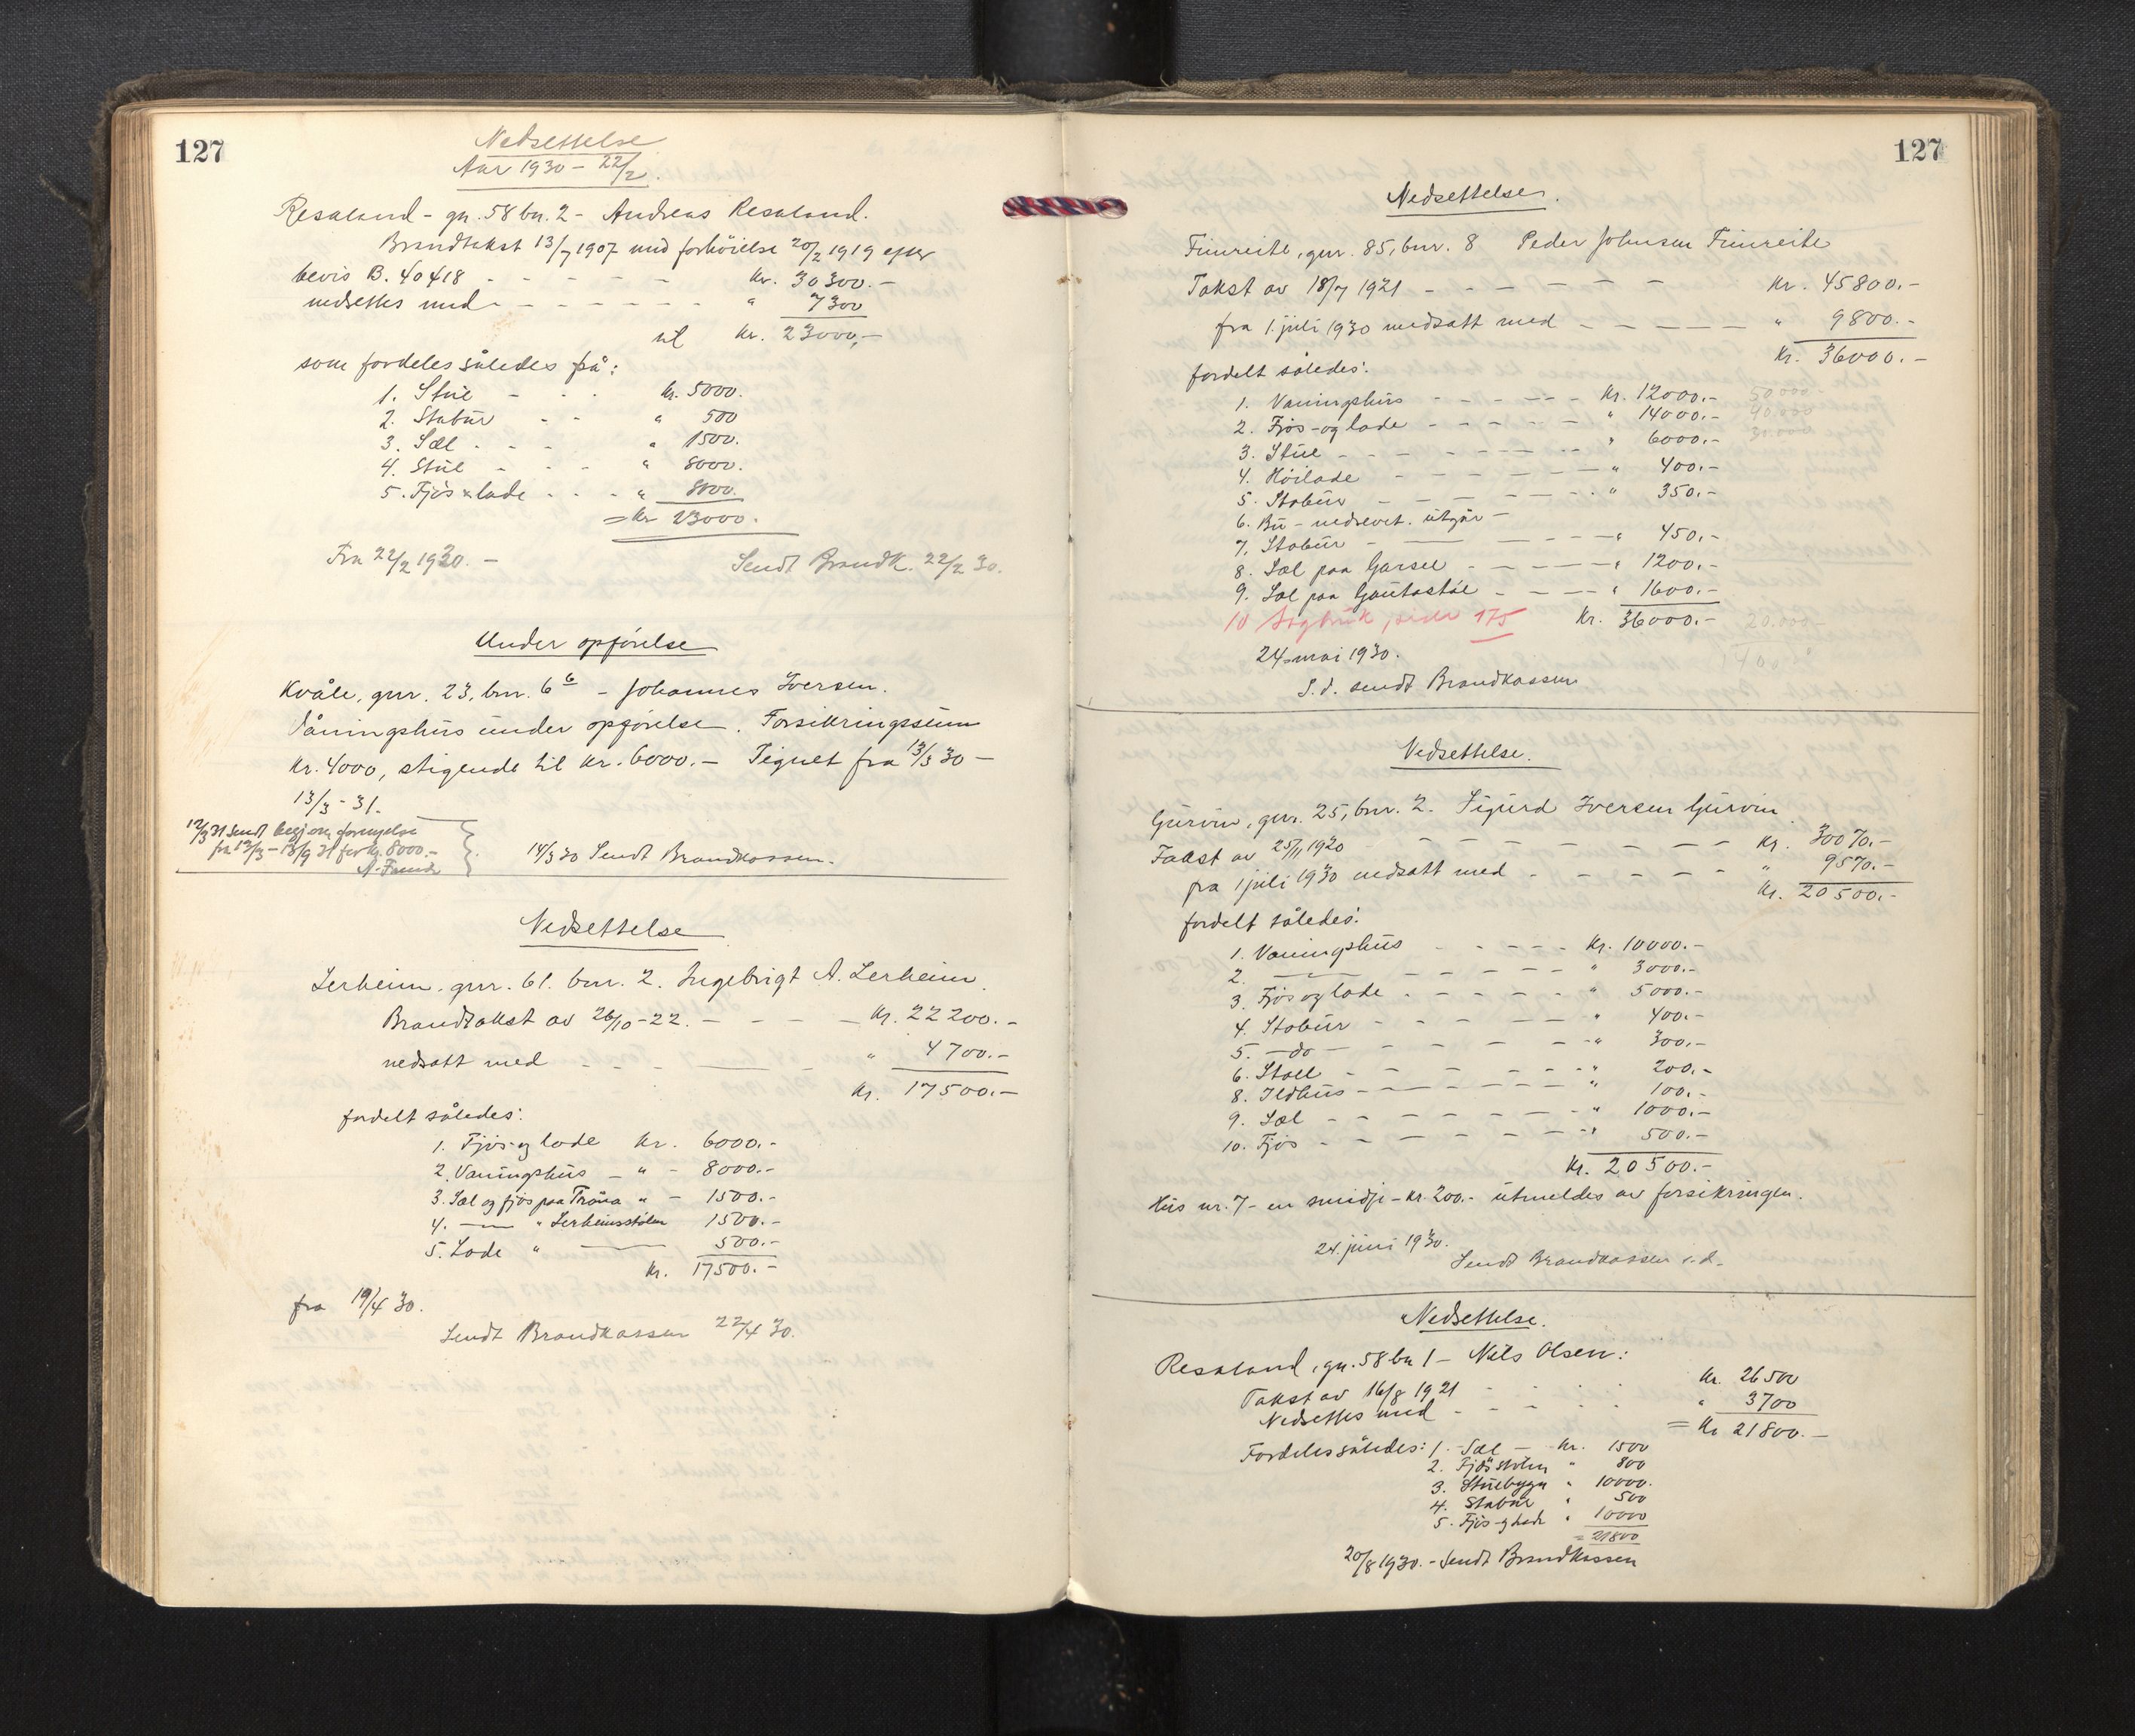 127
Nedsettelse
Aar 1930 - 22/2.
Resaland - gn. 58 bn. 2 - Andreas Resaland.
Brandtakst 13/7 1907 med forhöielse 20/2 1919 efter
bevis B. 40418 - - - - - kr. 30300.-
nedsettes med - - - - - - " 7300
til kr. 23000,-
som fordeles således på:
1. Stue - - - kr. 5000.
2. Stabur - - " 500
3. Sel - - - " 1500.
4. Stue - - - " 8000.
5. Fjös & lade - - - " 8000.
= kr 23000.
Fra 22/2 1930. -
Sendt Brandk. 22/2 30.
Under opførelse
Kvåle, gnr. 23, bnr. 6 6 - Johannes Iversen.
Våningshus under opførelse. Forsikringssum
kr. 4000, stigende til kr. 6000.- Tegnet fra 13/3 30 -
13/3 - 31.
12/3 31 sendt begj om fornyelse
fra 13/3 - 13/9 31 for kr. 8000.-
14/3 30 Sendt Brandkassen.
Nedsettelse
Lerheim, gnr. 61. bnr. 2. Ingebrigt A. Lerheim.
Brandtakst av 26/10 - 22. - - - - kr. 22200.-
nedsatt med - - - - " 4700.-
kr. 17500.-
fordelt således:
1. Fjøs og lade kr. 6000.-
2. Vaningshus - " - 8000.-
3. Sel og fjøs paa Trøna " - 1500.-
4. — " Lerheimsstølen 1500.-
5. Lade " — 500.-
kr. 17500.-
fra 19/4 30.
Sendt Brandkassen 22/4 30.
127
Nedsettelse.
Finreite, gnr. 85, bnr. 8 Peder Johnsen Finreite
Takst av 18/7 1921 - - - - - - kr. 45800.-
fra 1. juli 1930 nedsatt med - - - - - " 9800.-
kr. 36000.-
fordelt således:
1. Vaningshus - - - - - kr. 12000.- 50.000
2. Fjøs- og lade - - - - - " 14000.- 40.000
3. Stue - - - - - - " 6000.- 30.000
4. Høilade - - - - - " 400.-
5. Stabur - - - - - " 350.-
6. Bu - nedrevet. utgår -
7. Stabur - - - - - " 450.-
8. Sel paa Garsee - - - - " 1200.-
9. Sel paa Gautastøl - - - - " 1600.-
10 Sagbruk, side 175 Kr. 36000.- 20.000
24 mai 1930.
S. d. sendt Brandkassen
Nedsettelse.
Gurvin, gnr. 25, bnr. 2. Sigurd Iversen Gurvin.
Takst av 25/11 1920 - - - - - - kr. 30070.-
fra 1 juli 1930 nedsatt med - - - - - " 9570.-
kr. 20500.-
fordelt således:
1. Vaningshus - - - - kr. 10000.-
2. — - - - - " 3000.-
3. Fjøs og lade - - - - - " 5000.-
4. Stabur - - - - - " 400.-
5. - do - - - - - - " 300.-
6. Stall - - - - - " 200.-
8. Ildhus - - - - - " 100.-
9. Sel - - - - - - " 1000.-
10. Fjøs - - - - - " 500.-
kr. 20500.-
Hus nr. 7 - en smidje - kr. 200.- utmeldes av forsikringen.
24. juni 1930.
Sendt Brandkassen s.d.
Nedsettelse.
Resaland, gn. 58 bn 1 - Nils Olsen:
Takst av 16/8 1921 - - - - kr. 26500
Nedsettes med - - - - " 3700
= kr 21800.-
Fordeles således: 1. Sel - kr. 1500
2. Fjös stölen " 800
3. Stuebygn " 10000.
4. Stabur " 500
5. Fjös- og lade " 10000
= 21800
20/8 1930. - Sendt Brandkassen